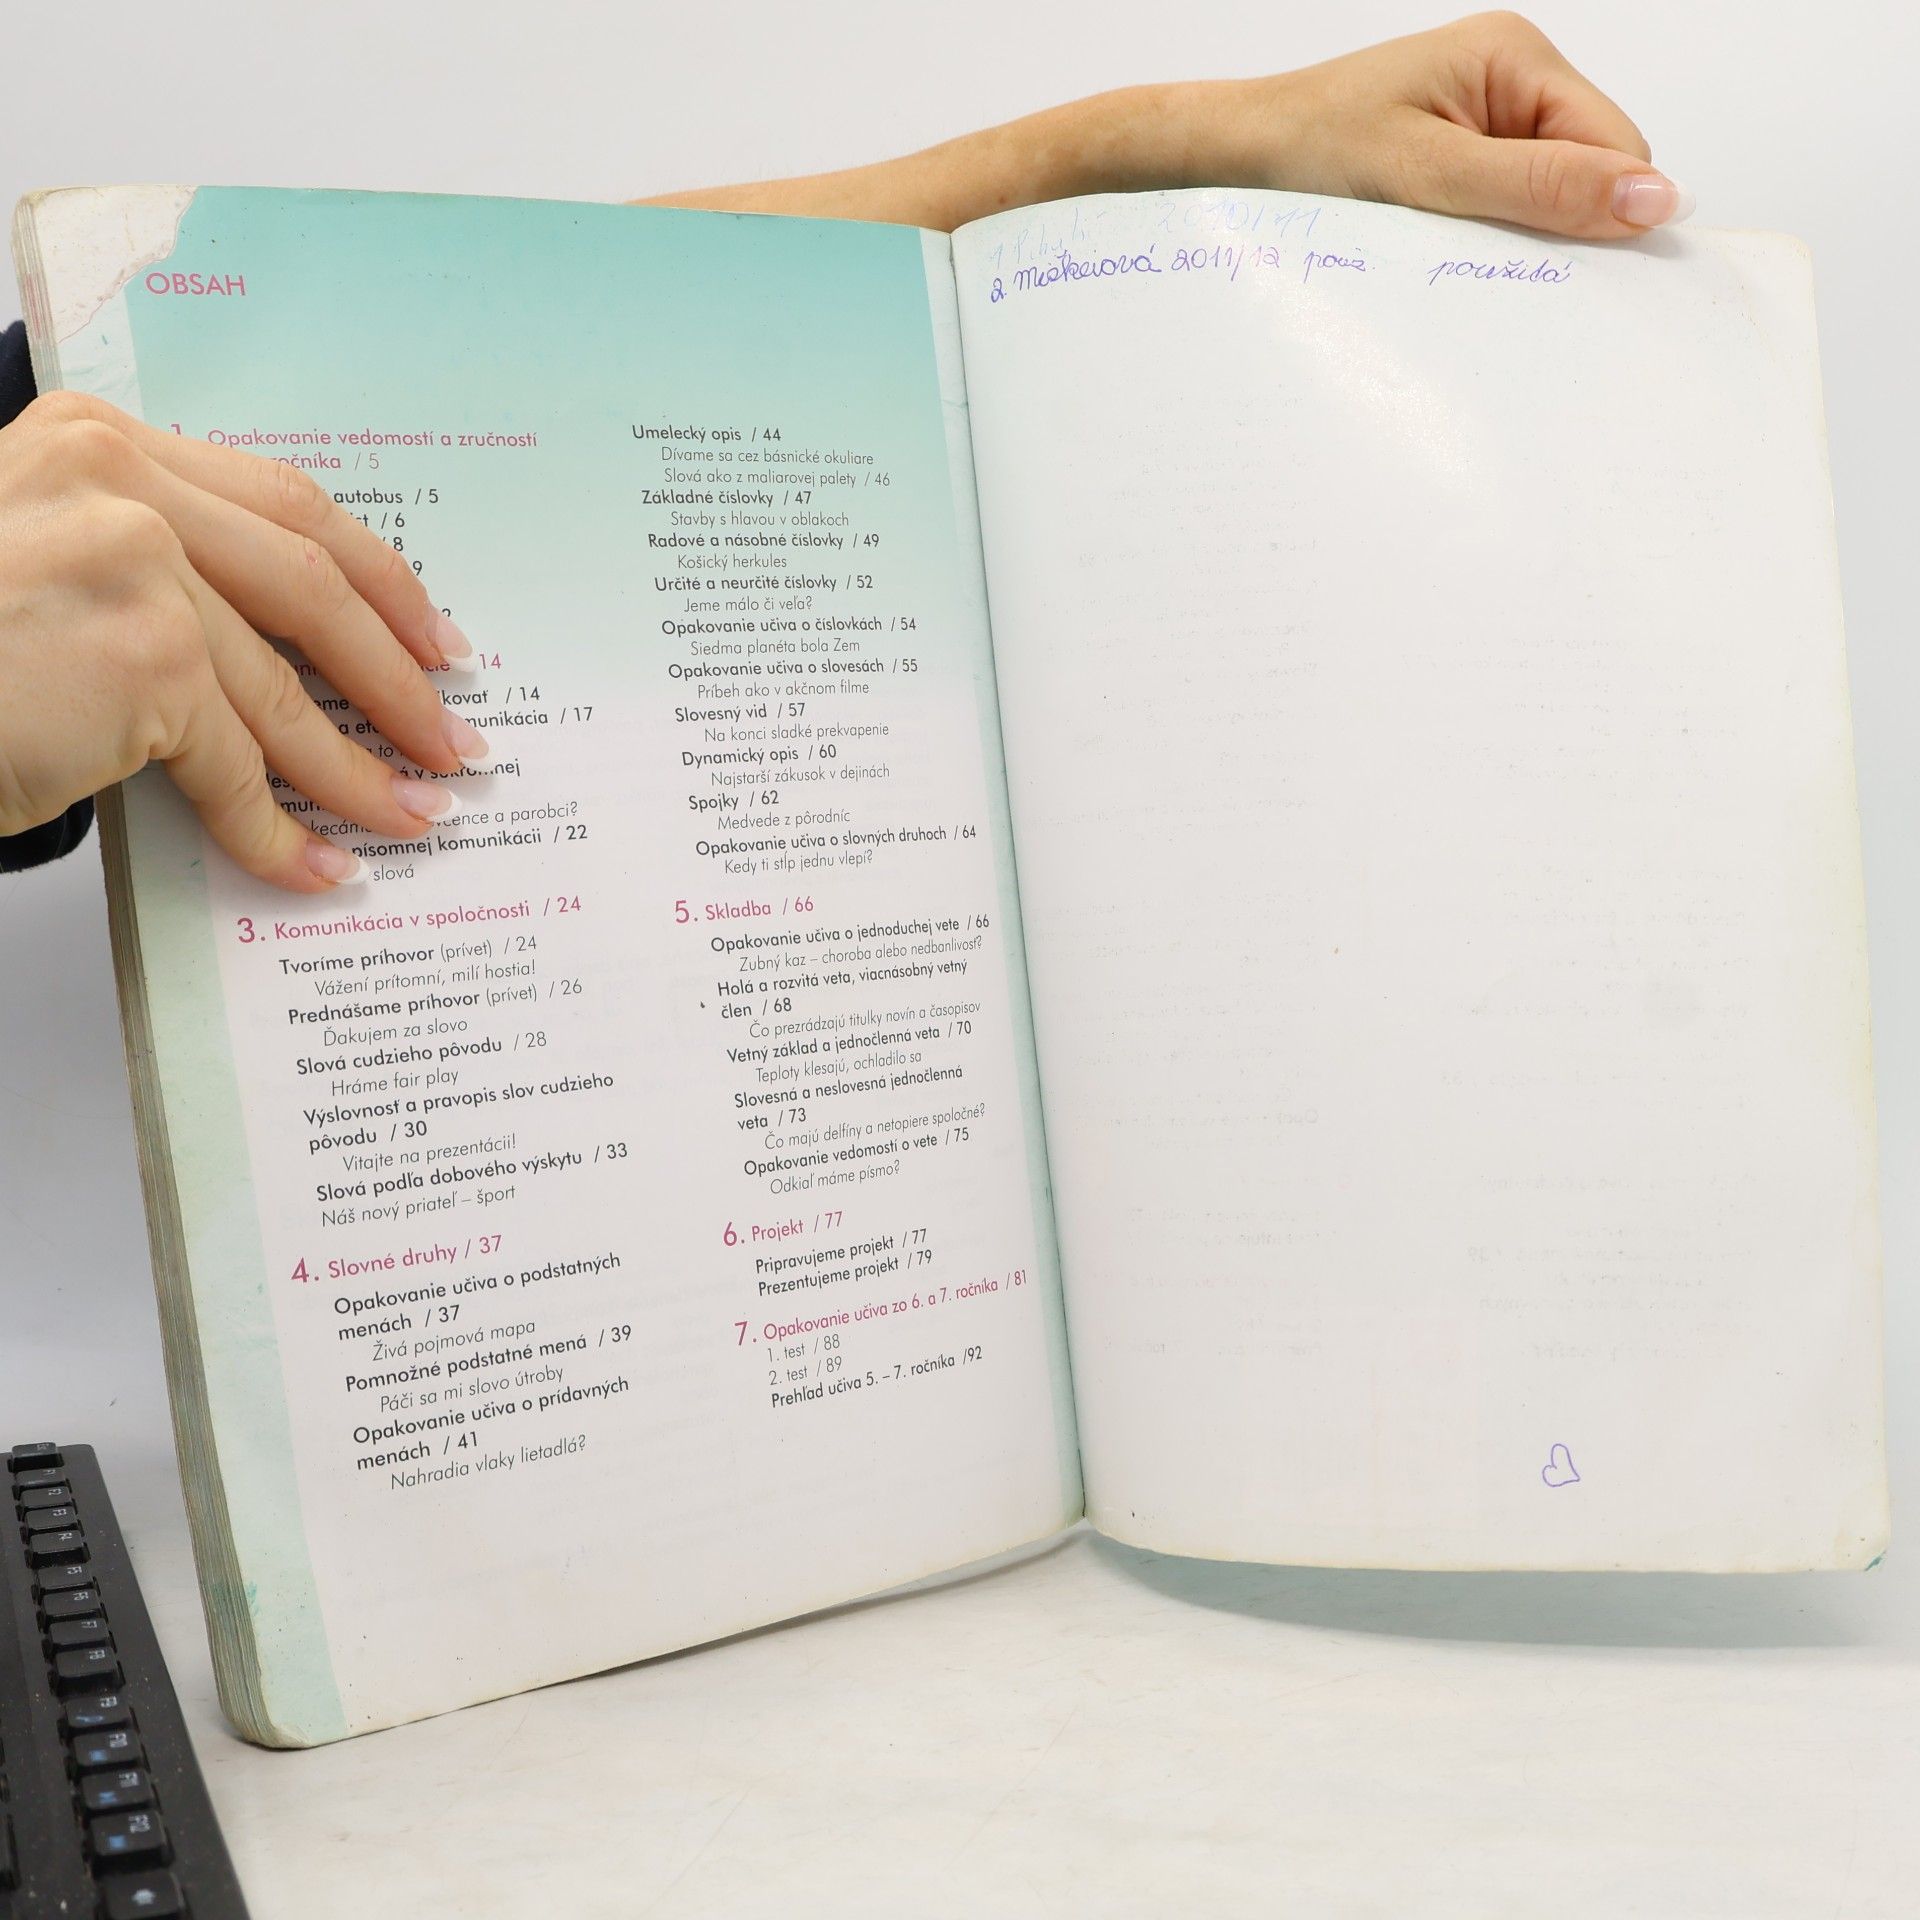 OBSAH
1. Opakovanie vedomostí a zručností
ročníka / 5
autobus / 5
/ 6
/ 8
9
2
14
kovať / 14
munikácia / 17
a to
v súkromnej
kecám
a parobci?
písomnej komunikácii / 22
slová
3. Komunikácia v spoločnosti / 24
Tvoríme príhovor (prívet) / 24
Vážení prítomní, milí hostia!
Prednášame príhovor (prívet) / 26
Ďakujem za slovo
Slová cudzieho pôvodu / 28
Hráme fair play
Výslovnosť a pravopis slov cudzieho
pôvodu / 30
Vitajte na prezentácii!
Slová podľa dobového výskytu / 33
Náš nový priateľ – šport
4. Slovné druhy / 37
Opakovanie učiva o podstatných
menách / 37
Živá pojmová mapa
Pomnožné podstatné mená / 39
Páči sa mi slovo útroby
Opakovanie učiva o prídavných
menách / 41
Nahradia vlaky lietadlá?
Umelecký opis / 44
Dívame sa cez básnické okuliare
Slová ako z maliarovej palety / 46
Základné číslovky / 47
Stavby s hlavou v oblakoch
Radové a násobné číslovky / 49
Košický herkules
Určité a neurčité číslovky / 52
Jeme málo či veľa?
Opakovanie učiva o číslovkách / 54
Siedma planéta bola Zem
Opakovanie učiva o slovesách / 55
Príbeh ako v akčnom filme
Slovesný vid / 57
Na konci sladké prekvapenie
Dynamický opis / 60
Najstarší zákusok v dejinách
Spojky / 62
Medvede z pôrodníc
Opakovanie učiva o slovných druhoch / 64
Kedy ti stĺp jednu vlepí?
5. Skladba / 66
Opakovanie učiva o jednoduchej vete / 66
Zubný kaz – choroba alebo nedbanlivosť?
Holá a rozvitá veta, viacnásobný vetný
člen / 68
Čo prezrádzajú titulky novín a časopisov
Vetný základ a jednočlenná veta / 70
Teploty klesajú, ochladilo sa
Slovesná a neslovesná jednočlenná
veta / 73
Čo majú delfíny a netopiere spoločné?
Opakovanie vedomostí o vete / 75
Odkiaľ máme písmo?
6. Projekt / 77
Pripravujeme projekt / 77
Prezentujeme projekt / 79
7. Opakovanie učiva zo 6. a 7. ročníka / 81
1. test / 88
2. test / 89
Prehľad učiva 5. – 7. ročníka /92
2010/11
2. 2011/12 použ. použitá